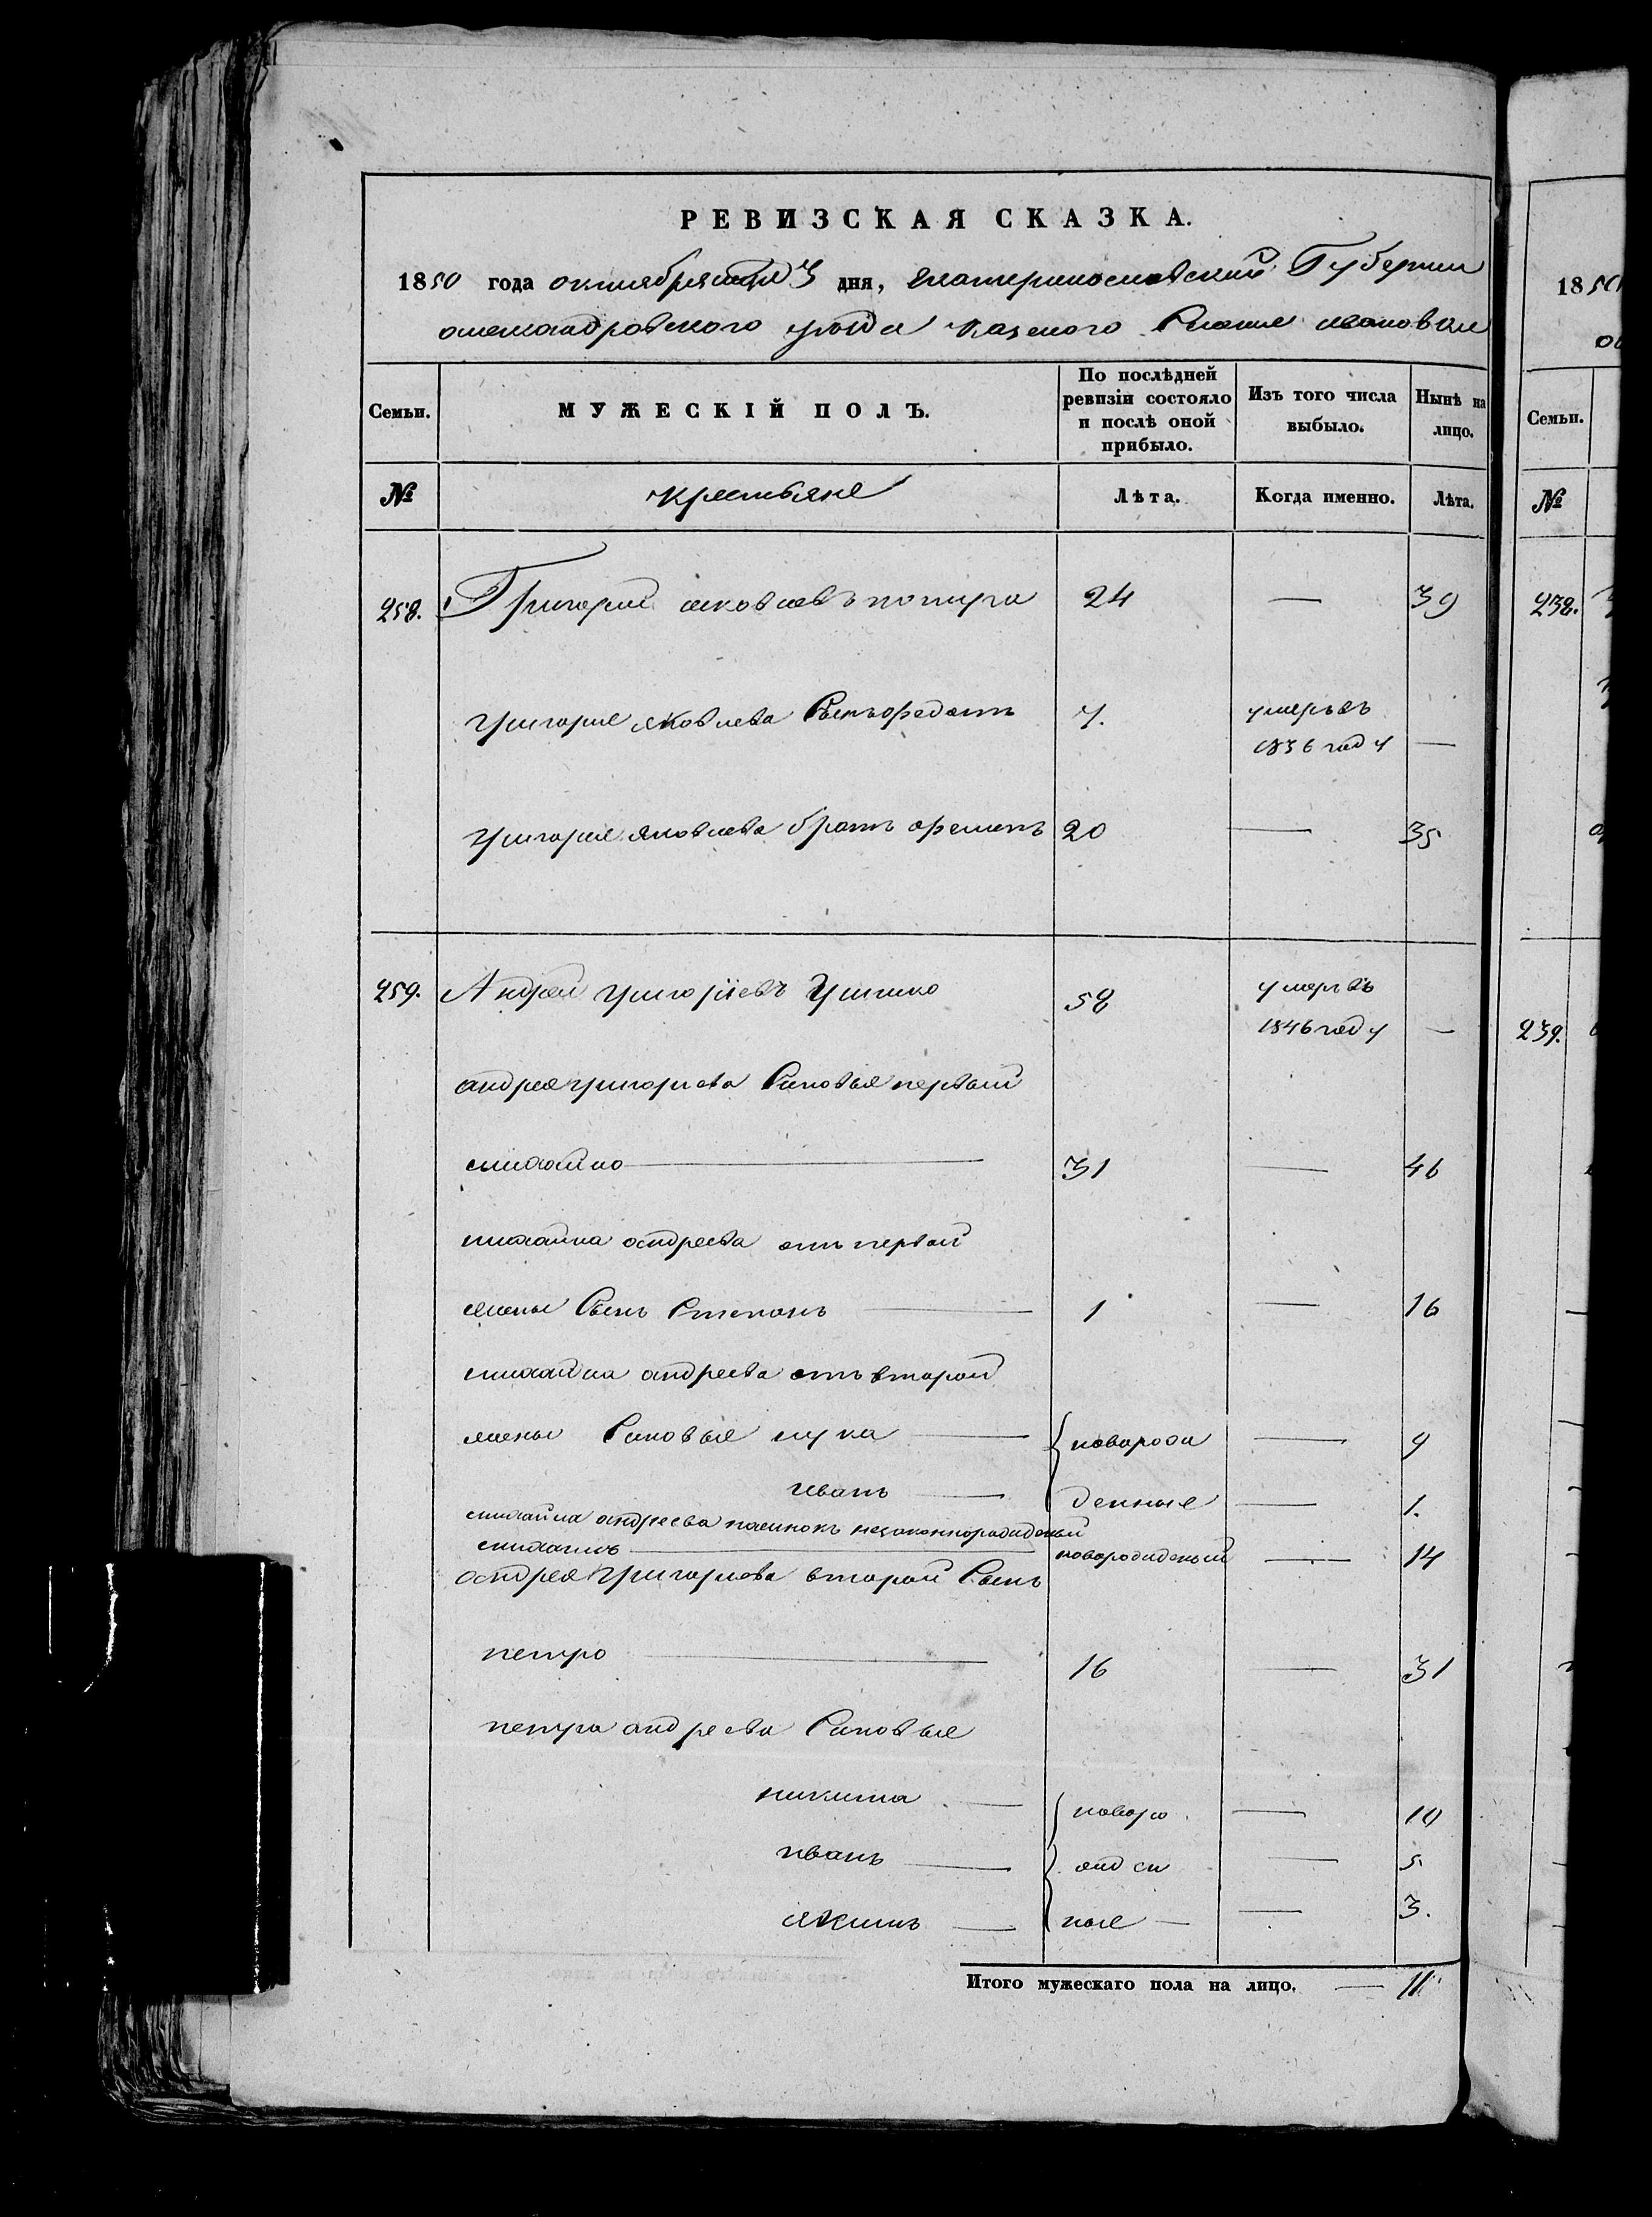 РЕВИЗСКАЯ СКАЗКА.
1850 года октября 3 дня, екатеринославский Губернии
александровского уезда казеного Селение ивановки
Семьи.
МУЖЕСКІЙ ПОЛЪ.
По послѣдней ревизіи состояло и послѣ оной прибыло.
Изъ того числа выбыло.
Нынѣ на лицо.
№
крестьяне
Лѣта.
Когда именно.
Лѣта.
258. Григорий яковлевъ 24 — 39
григорие яковлева Сынъ 7. умеръ въ
1836 году —
григория яковлева братъ 20 — 35
259. Андрей григоріевъ 58 умеръ въ
1846 году —
андрея григориева Синовья первый
михайло — 31 — 46
михайла андреева отъ первой
жены Сынъ Степанъ — 1 — 16
михайла андреева отъ второй
жены Синовья лука — новорож — 9
иванъ — денные — 1.
михайла андреева пасинокъ незаконнорожденый
михаилъ — новорожденый — 14
андрея григориева второй Сынъ
петро — 16 — 31
петра андреева Синовья
никита — новоро — 10
иванъ — жден — 5
якимъ — ные — — 3.
Итого мужескаго пола на лицо. — 11
1850
Семьи.
№
238.
239.